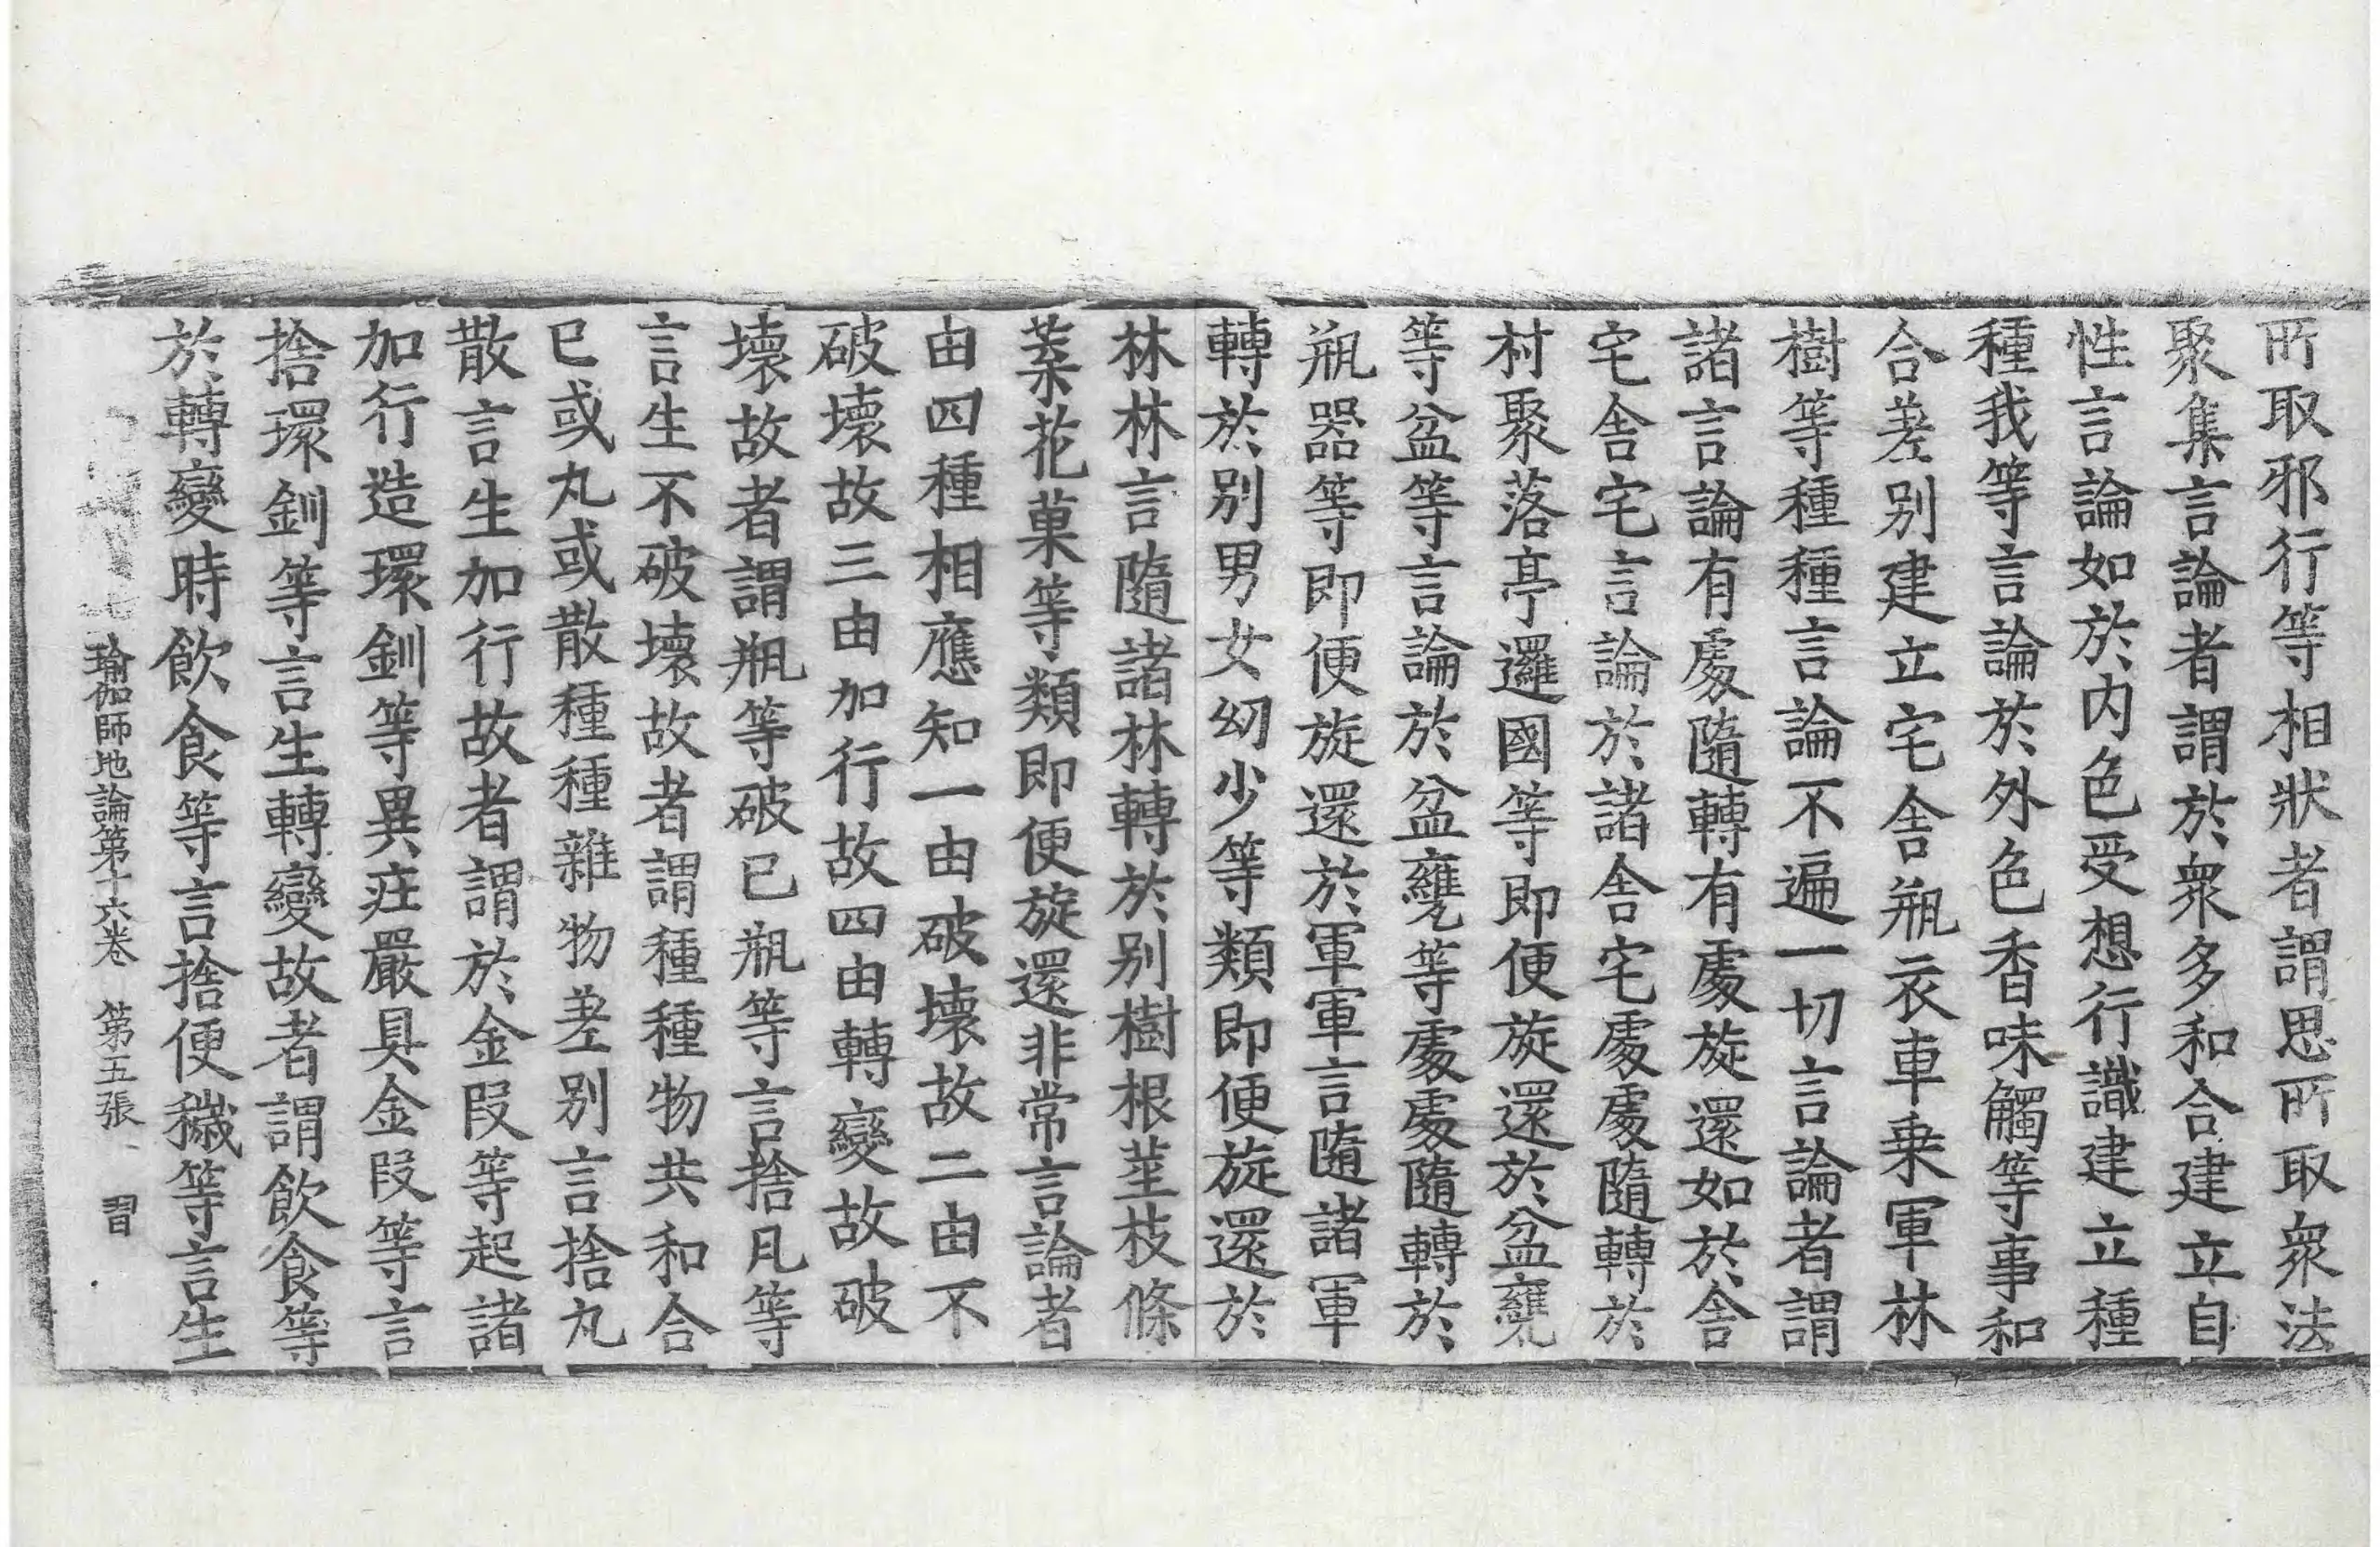 所取邪行等相狀者謂思所取衆法
聚集言論者謂於衆多和合建立自
性言論如於内色受想行識建立種
種我等言論於外色香味觸等事和
合差别建立宅舍瓶衣車乗軍林
樹等種種言論不遍一切言論者謂
諸言論有處隨轉有處旋還如於舍
宅舍宅言論於諸舍宅處處隨轉於
村聚落亭邏國等即便旋還於盆甕
等盆等言論於盆甕等處處隨轉於
瓶器等即便旋還於軍軍言隨諸軍
轉於别男女幼少等類即便旋還於
林林言隨諸林轉於别樹根莖枝條
葉花菓等類即便旋還非常言論者
由四種相應知一由破壞故二由不
破壞故三由加行故四由轉變故破
壞故者謂瓶等破已瓶等言捨凡等
言生不破壞故者謂種種物共和合
已或丸或散種種雜物差别言捨丸
散言生加行故者謂於金段等起諸
加行造環釧等異莊嚴具金段等言
捨環釧等言生轉變故者謂飲食等
於轉變時飲食等言捨便穢等言生
瑜伽師地論第十六卷 第五張 習